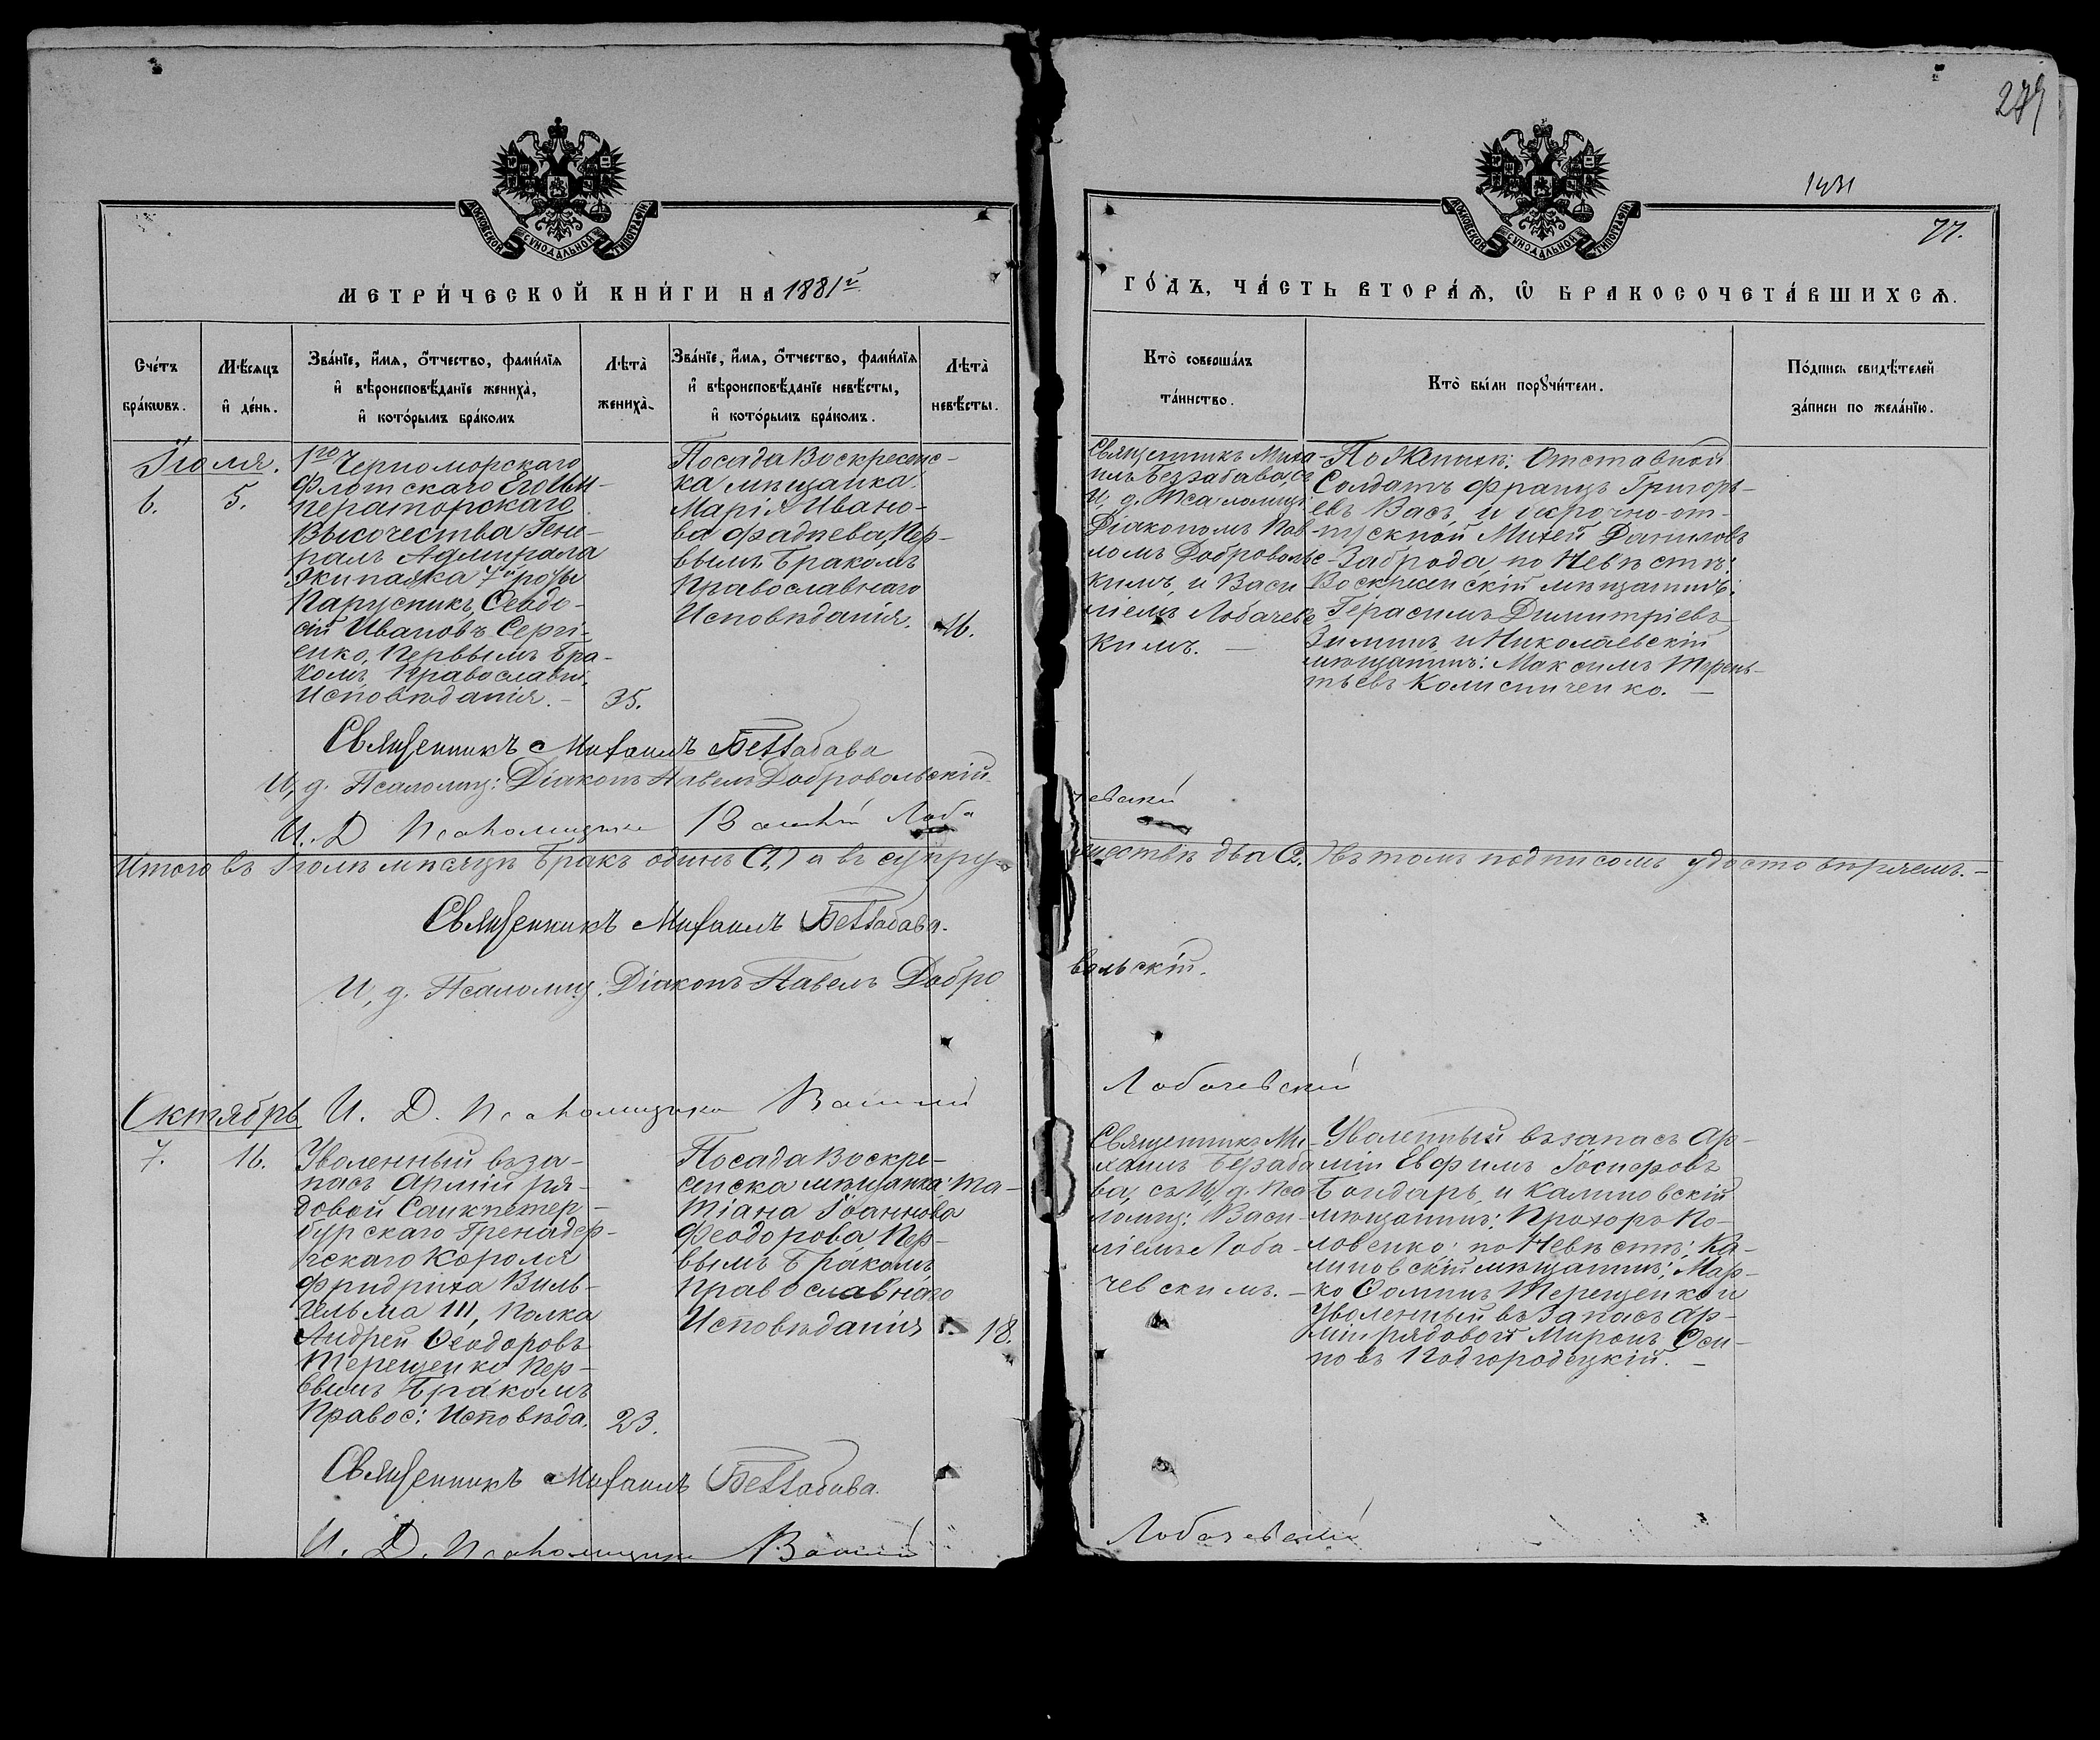 279
1431
77.
МОСКОВСКОЙ СѴНОДАЛЬНОЙ ТИПОГРАФІИ
МОСКОВСКОЙ СѴНОДАЛЬНОЙ ТИПОГРАФІИ
МЕТРИ́ЧЕСКОЙ КНИ́ГИ НА 1881й
ГО́ДЪ, ЧА́СТЬ ВТОРА́Ѧ, Ѡ҆ БРАКОСОЧЕТА́ВШИХСѦ.
Сче́тъ бра́кѡвъ.
Мѣ́сѧцъ и҆ де́нь.
Зва́нїе, и҆́мѧ, ѻ҆́тчество, фами́лїѧ и҆ вѣроисповѣ́данїе жениха̀, и҆ кото́рымъ бра́комъ
Лѣта̀ жениха̀.
Зва́нїе, и҆́мѧ, ѻ҆́тчество, фами́лїѧ и҆ вѣроисповѣ́данїе невѣ́сты, и҆ кото́рымъ бра́комъ.
Лѣта̀ невѣ́сты.
Кто̀ соверша́лъ та́инство.
Кто̀ бы́ли порꙋчи́тели.
По́дпись свидѣ́телей за́писи по жела́нїю.
Іюля.
6.
5.
1го Черноморскаго
Флотскаго Его Им-
ператорскаго
Высочества Гене-
ралъ Адмирала
Экипажа 7й роты
Парусникъ, Ѳеодо-
сій Ивановъ Сергі-
енко, Первымъ Бра-
комъ, Православн.
Исповѣданія. –
35.
Посада Воскресенс-
ка мѣщанка
Марія Ивано-
ва Фадѣева, Пер-
вымъ Бракомъ
Православнаго
Исповѣданія.
16.
Священникъ Миха-
илъ Беззабава, съ
И, д. Псаломщ:
Діакономъ Пав-
ломъ Доброволь-
кимъ, и Васи
ліемъ Лобачевс
кимъ. –
По Женихѣ: Отставной
Солдатъ Францъ Григорь-
евъ Васъ, и срочно-от-
пускной Михей Даниловъ
Заброда, по Невѣстѣ:
Воскресенскій мѣщанинъ:
Герасимъ Димитріевъ
Зиминъ и Николаевскій
мѣщанинъ: Максимъ Терень-
тьевъ Колисниченко. –
Священникъ Михаилъ Беззабава
И, д. Псаломщ: Діаконъ Павелъ Добровольскій.
И. Д Псаломщика Василій Лоба
чевскій
Итого въ Іюлѣ мѣсяцѣ Бракъ одинъ (1,) а въ супру-
жествѣ два (2. Въ томъ подписомъ удостовѣряемъ. –
Священникъ Михаилъ Беззабава.
И, д. Псаломщ: Діаконъ Павелъ Добро
вольскій.
И. Д. Псаломщика Василій
Лобачевскій
Октябрь
7.
16.
Уволенный въ за-
пасъ Арміи ря-
довой Санкпетер-
бургскаго Гренадер-
скаго Короля
Фридриха Виль-
гельма III, Полка
Андрей Ѳеодоровъ
Терещенко Пер-
вымъ Бракомъ
Правос: Исповѣда.
23.
Посада Воскре-
сенска мѣщанка: Та-
тіана Іоаннова
Феодорова Пер-
вымъ Бракомъ
Православнаго
Исповѣданія
18.
Священникъ Ми-
хаилъ Безаба
ва, съ И, д. Пса
ломщ: Васи-
ліемъ Лоба-
чевскимъ. –
Уволенный въ запасъ Ар-
міи Евфимъ
Бондарь, и Калиновскій
мѣщанинъ: Прохоръ По-
ловенко: по Невѣстѣ: Ка-
линовскій мѣщанинъ: Мар-
ко Ѳоминъ Терещенко и
Уволенный въ Запасъ Ар-
міи рядовой Миронъ Оси-
повъ Подгородецкій. –
Священникъ Михаилъ Беззабава.
И. Д. Псаломщика Василій
Лобачевскій